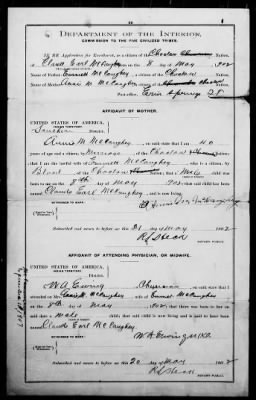 DEPARTMENT OF THE INTERIOR,
COMMISSION TO THE FIVE CIVILIZED TRIBES.
IN RE Application for Enrollment, as a citizen of the Choctaw Nation,
of Claud Earl McCaughey, born on the 8 day of May, 1902
Name of Father: Emmett McCaughey a citizen of the Choctaw Nation.
Name of Mother: M. McCaughey a citizen of the Nation.
AFFIDAVIT OF MOTHER.
UNITED STATES OF AMERICA,
INDIAN TERRITORY,
District.
I, Annie M. McCaughey, on oath state that I am 40
years of age and a citizen, by Marriage, of the Choctaw Nation;
that I am the lawful wife of Emmett McCaughey, who is a citizen, by
Blood of the Choctaw Nation; that a Male child was
born to me on 8th day of May, 1902, that said child has been
named Claude Earl McCaughey, and is now living.
WITNESSES TO MARK:
Subscribed and sworn to before me this 21 day of May, 1902
NOTARY PUBLIC.
AFFIDAVIT OF ATTENDING PHYSICIAN, OR MIDWIFE.
UNITED STATES OF AMERICA,
INDIAN TERRITORY,
District.
I, W A Ewing, a Physician, on oath state that I
attended on Mrs. McCaughey, wife of Emmet McCaughey
on the 8th day of May, 1902; that there was born to her on said
date a male child; that said child is now living and is said to have been named
Claude Earl McCaughey.
W A Ewing M.D.
WITNESSES TO MARK:
Subscribed and sworn to before me this 20 day of May, 1902
NOTARY PUBLIC.